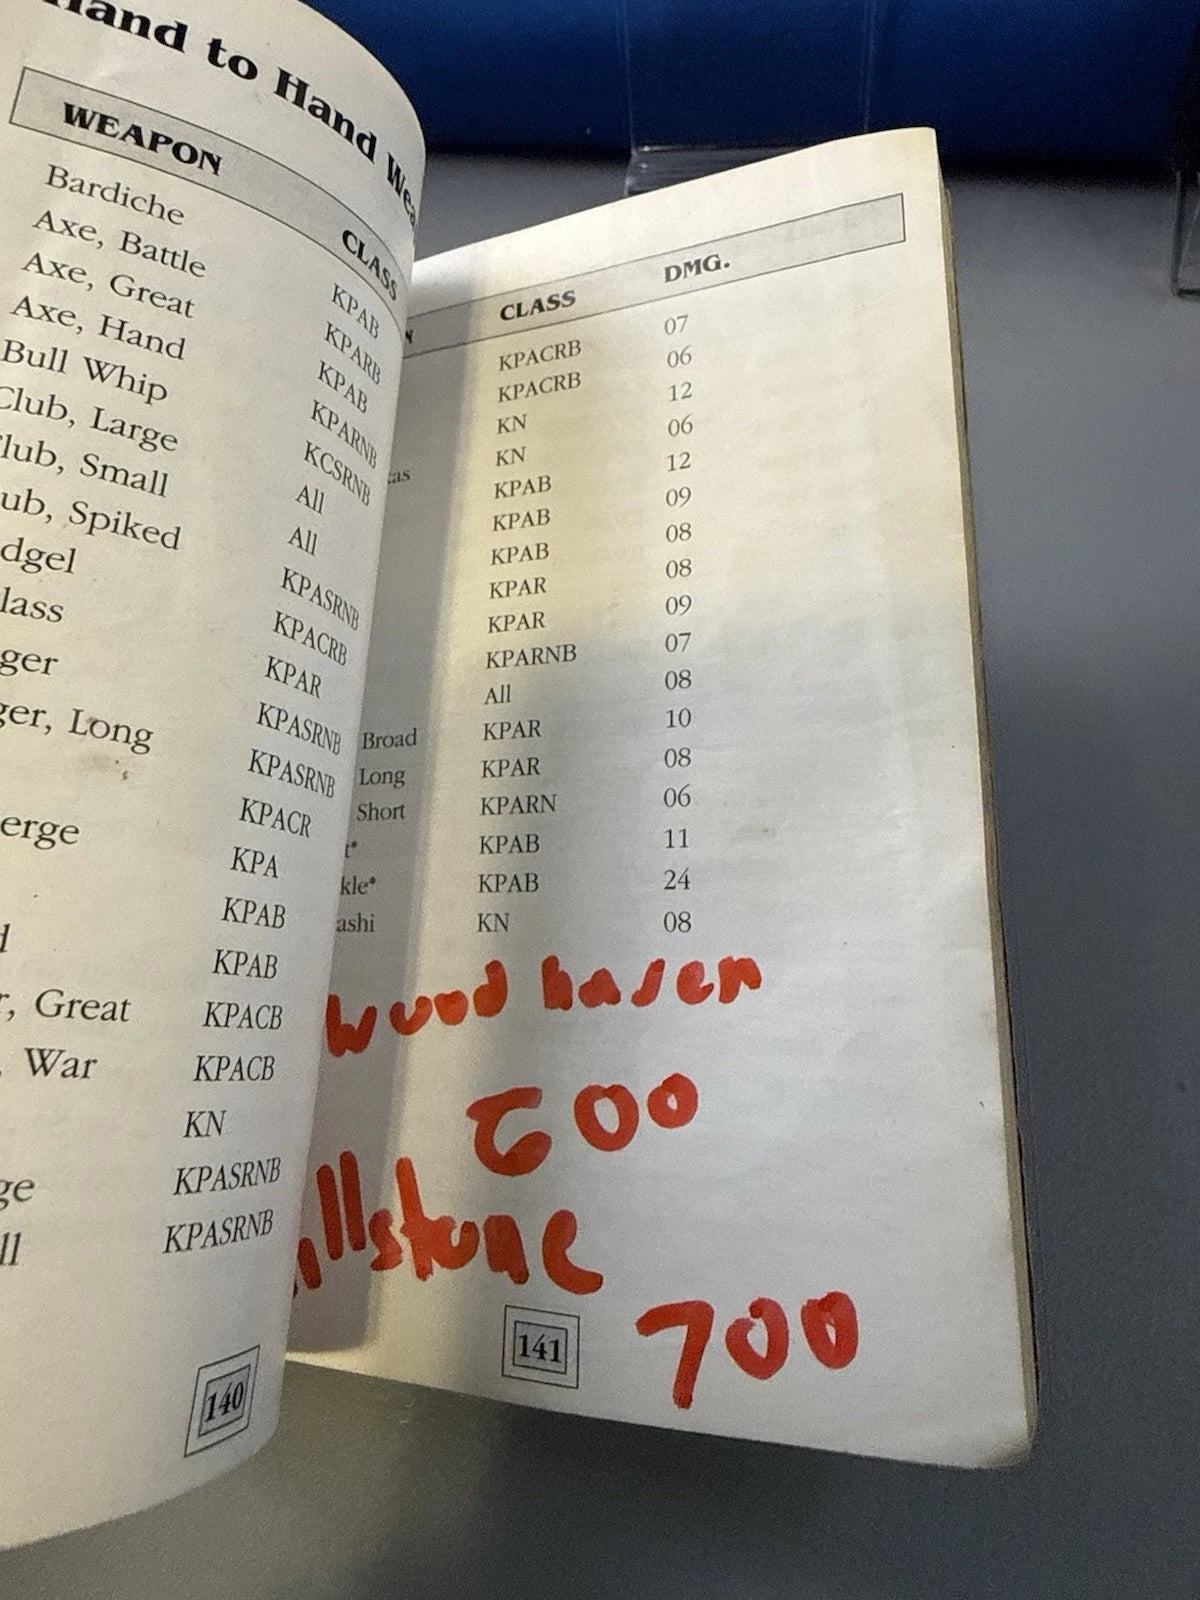 Hand to Hand Wea
WEAPON CLASS
Bardiche KPAB
Axe, Battle KPARB
Axe, Great KPAB
Axe, Hand KPARNB
Bull Whip KCSRNB
Club, Large All
lub, Small All
ub, Spiked KPASRNB
dgel KPACRB
lass KPAR
ger KPASRNB
ger, Long KPASRNB
KPACR
erge KPA
KPAB
d KPAB
r, Great KPACB
, War KPACB
KN
ge KPASRNB
ll KPASRNB
140
N CLASS DMG.
KPACRB 07
KPACRB 06
KN 12
KN 06
as KPAB 12
KPAB 09
KPAB 08
KPAR 08
KPAR 09
KPARNB 07
All 08
Broad KPAR 10
Long KPAR 08
Short KPARN 06
t* KPAB 11
kle* KPAB 24
ashi KN 08
wood hasen
600
illstone
700
141